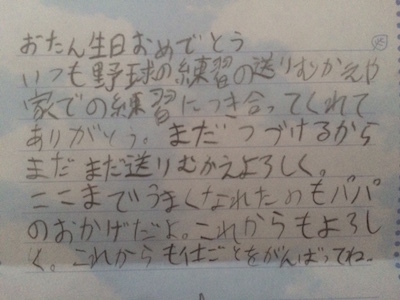 おたん生日おめでとう
いつも野球の練習の送りむかえや
家での練習につき合ってくれて
ありがとう。まだつづけるから
まだまだ送りむかえよろしく。
ここまでうまくなれたのもパパ
のおかげだよ。これからもよろし
く。これからも仕ごとをがんばってね。